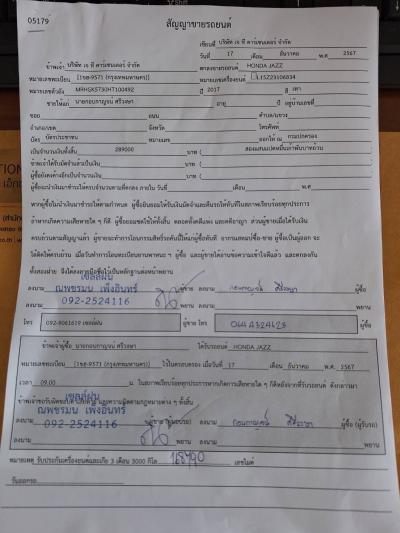 05179
สัญญาขายรถยนต์
เขียนที่ บริษัท เจ ที คาร์เซนเตอร์ จำกัด
วันที่ 17 เดือน ธันวาคม พ.ศ. 2567
ข้าพเจ้า บริษัท เจ ที คาร์เซนเตอร์ จำกัด ตกลงขายรถยนต์ HONDA JAZZ
หมายเลขทะเบียน [1ขส-9571 (กรุงเทพมหานคร)] หมายเลขเครื่องยนต์ L15Z23106834
หมายเลขตัวถัง MRHGK5730HT100492 ปี 2017 สี เทา
ขายให้แก่ นายกอบกาญจน์ ศรีวงษา อายุ ปี อยู่บ้านเลขที่
ซอย ถนน ตำบล/แขวง
อำเภอ/เขต จังหวัด โทรศัพท์
บัตร บัตรประชาชน หมายเลข ออกให้ ณ กรมปกครอง
เป็นจำนวนเงินทั้งสิ้น 289000 บาท ( สองแสนแปดหมื่นเก้าพันบาทถ้วน
ข้าพเจ้าได้รับมัดจำแล้วเป็นเงิน บาท (
ผู้ซื้อยังคงค้างอีกเป็นจำนวนเงิน บาท (
ผู้ซื้อจะนำเงินมาชำระให้ครบจำนวนตามที่ตกลง ภายใน วันที่ เดือน พ.ศ.
หากผู้ซื้อไม่นำเงินมาชำระให้ตามกำหนด ผู้ซื้อยินยอมให้ริบเงินมัดจำและคืนรถให้ทันทีในสภาพเรียบร้อยทุกประการ
ถ้าหากเกิดความเสียหายใด ๆ ก็ดี ผู้ซื้อยอมชดใช้ให้ทั้งสิ้น ตลอดทั้งคดีแพ่ง และคดีอาญา ส่วนผู้ขายเมื่อได้รับเงิน
ครบถ้วนตามสัญญาแล้ว ผู้ขายจะทำการโอนกรรมสิทธิ์รถคันนี้ให้แก่ผู้ซื้อทันที
ทั้งสองฝ่าย จึงได้ลงลายมือชื่อไว้เป็นหลักฐานต่อหน้าพยาน
เซลล์ฝน
ณพชรมน เพ็งอินทร์
ลงนาม ผู้ขาย ลงนาม กอบกาญจน์ ศรีวงษา ผู้ซื้อ
092-2524116
ลงนาม พยาน ลงนาม พยาน
โทร 092-9061619 เซลล์ฝน ผู้ขาย โทร ผู้ซื้อ
ข้าพเจ้าผู้ซื้อ นายกอบกาญจน์ ศรีวงษา ได้รับรถยนต์ HONDA JAZZ
หมายเลขทะเบียน [1ขส-9571 (กรุงเทพมหานคร)] ไว้ในครอบครอง เมื่อวันที่ 17 เดือน ธันวาคม พ.ศ. 2567
เวลา 09.00 น. ในสภาพเรียบร้อยทุกประการหากเกิดการเสียหายใด ๆ ก็ดีหลังจากที่รับรถยนต์ ดังกล่าวมา
ข้าพเจ้าขอรับผิดชอบ และความผิดตามกฎหมายต่าง ๆ ทั้งสิ้น
เซลล์ฝน
ณพชรมน เพ็งอินทร์
ลงนาม ผู้ขาย ลงนาม กอบกาญจน์ ศรีวงษา ผู้ซื้อ (ผู้รับรถ)
092-2524116
ลงนาม พยาน ลงนาม พยาน
หมายเหตุ รับประกันเครื่องยนต์และเกียร์ 3 เดือน 3000 กิโล เลขไมล์
วันออกรถ